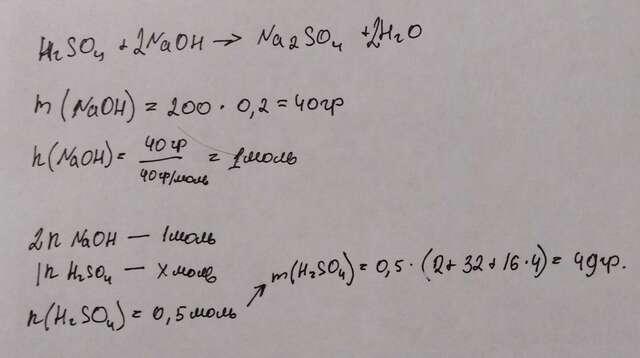 H₂SO₄ + 2NaOH → Na₂SO₄ + 2H₂O
m(NaOH) = 200 · 0,2 = 40гр
n(NaOH) = 40гр / 40гр/моль = 1моль
2n NaOH — 1моль
1n H₂SO₄ — x моль
n(H₂SO₄) = 0,5 моль → m(H₂SO₄) = 0,5 · (2+32+16·4) = 49гр.